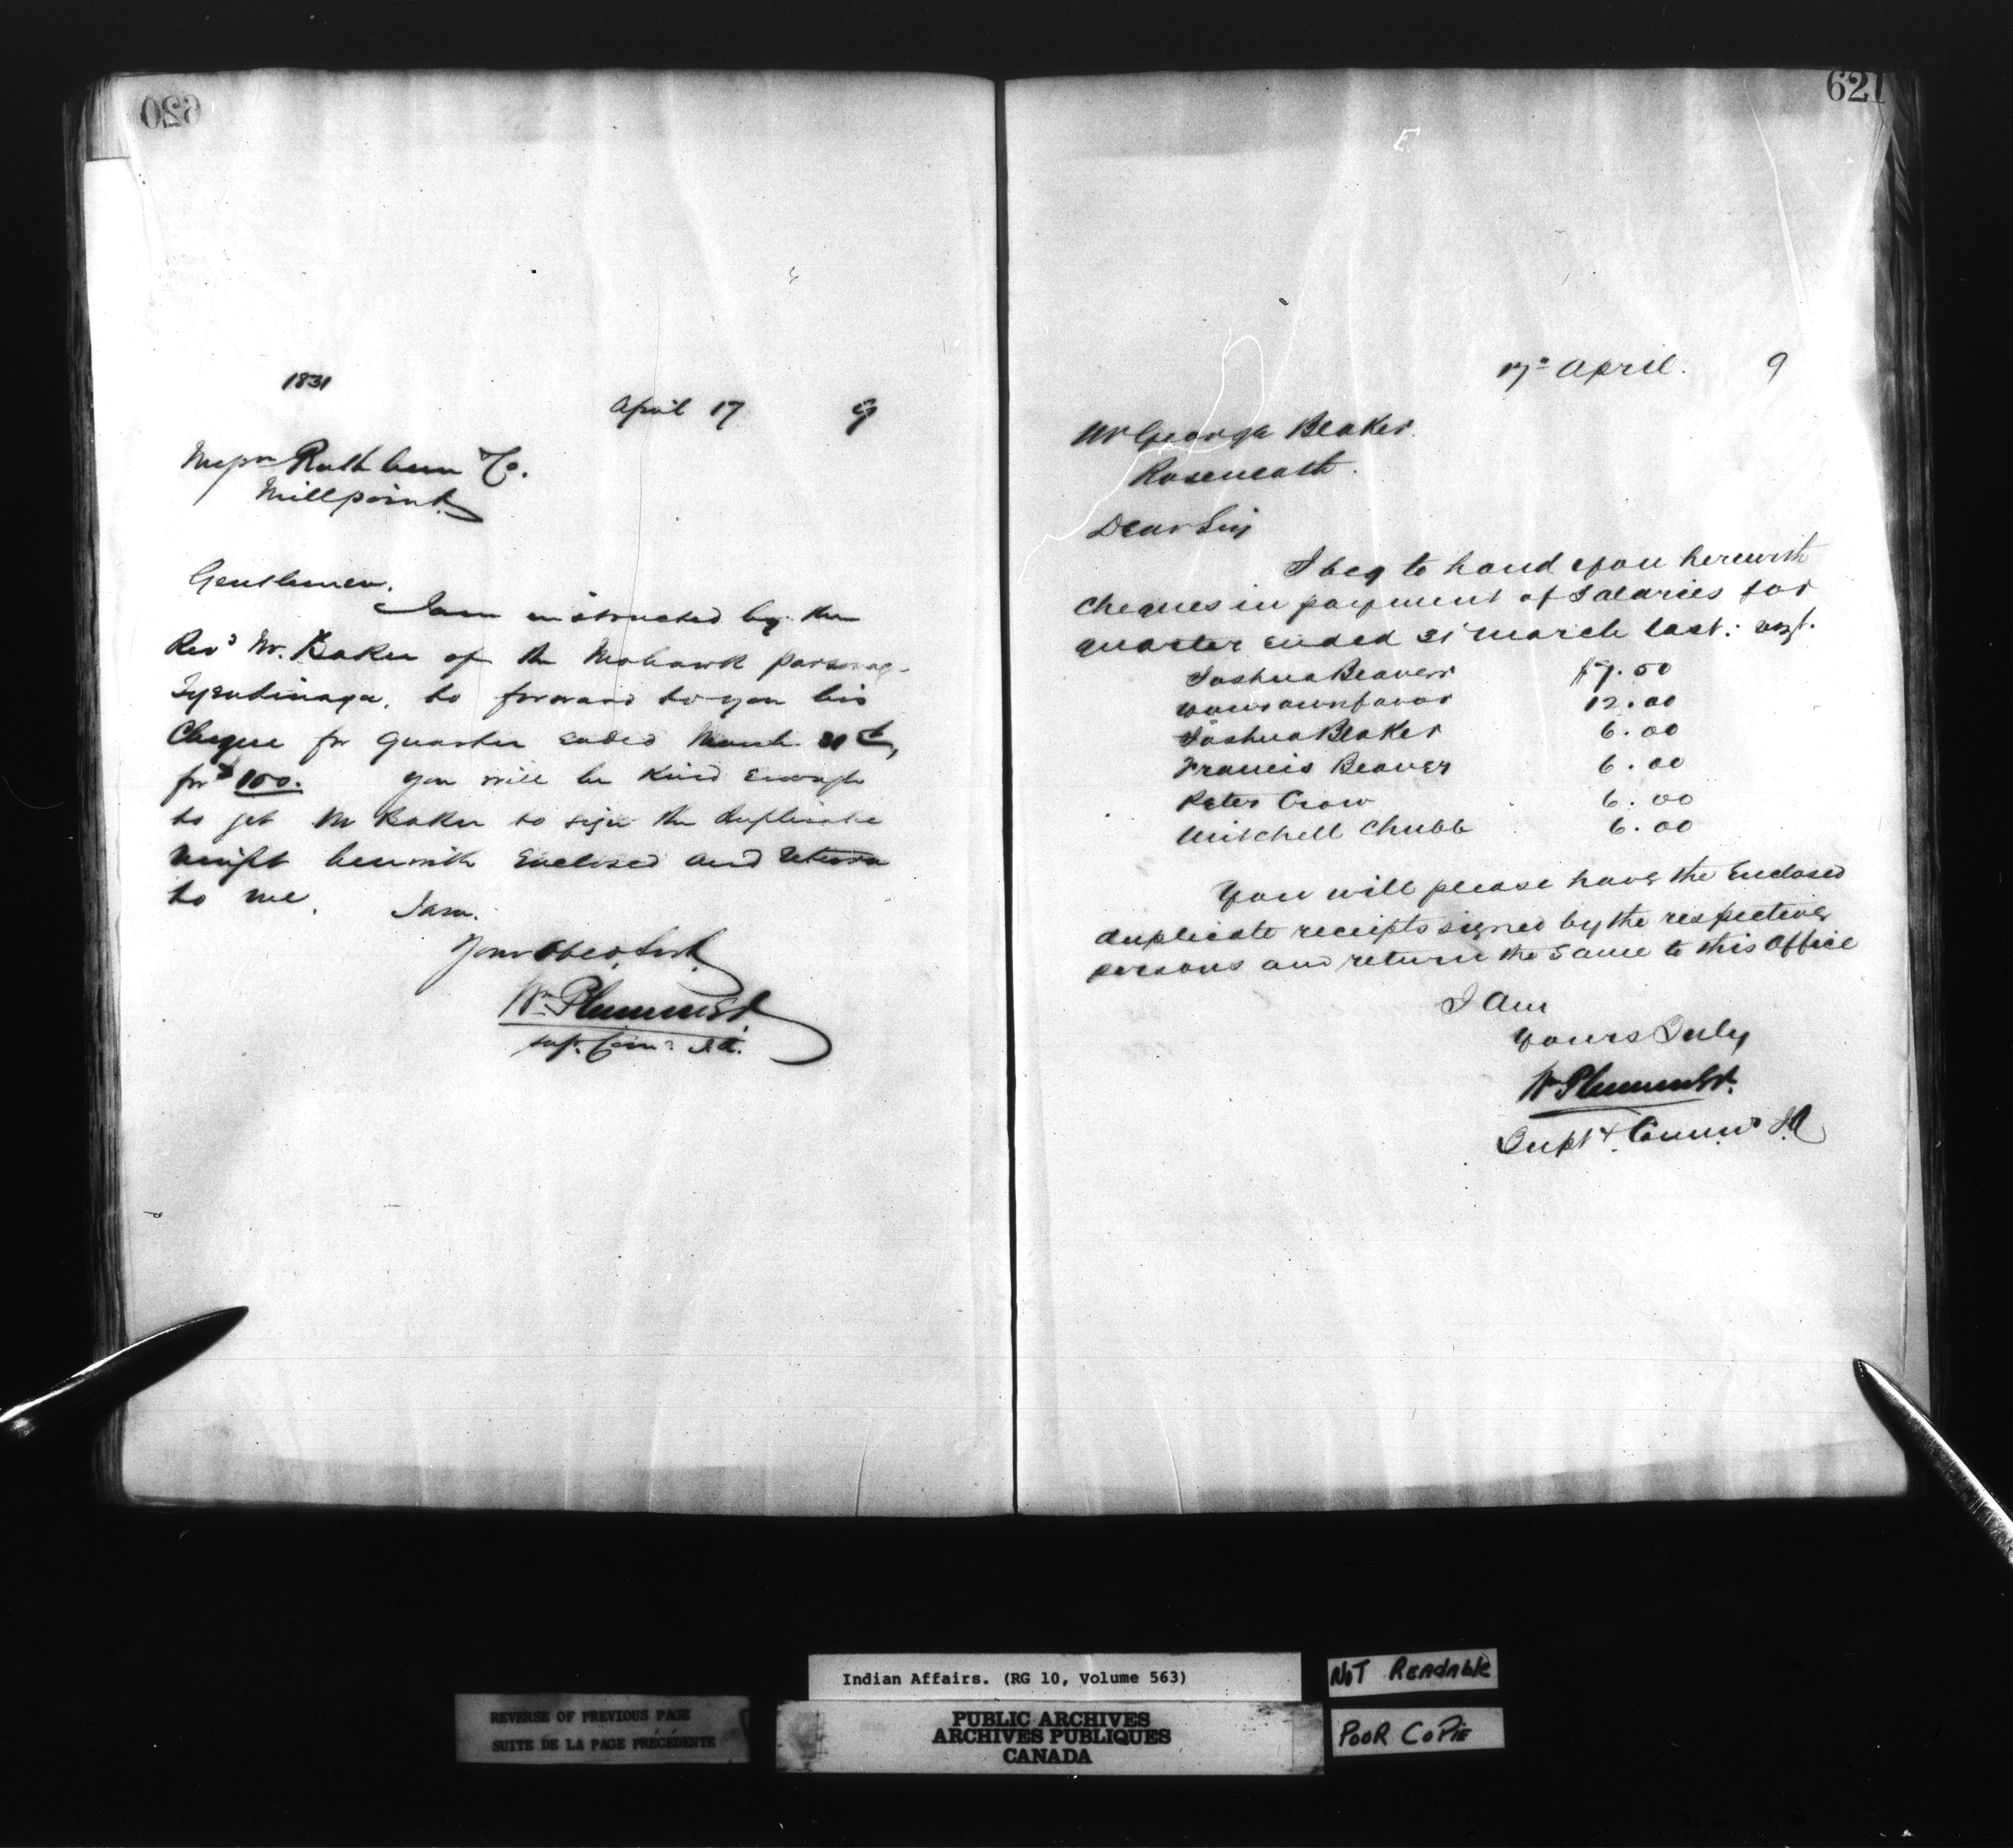 620
1831
April 17 9
Messrs Rathbun & Co.
Millpoint
Gentlemen.
I am instructed by the
Revd Mr. Baker of the Mohawk parsonage
Tyendinaga, to forward to you his
Cheque for quarter ended March 31st,
for $100. You will be kind enough
to get Mr Baker to sign the duplicate
receipt herewith enclosed and return
to me. I am.
Your Obed. Servt.
Wm Plummer
Supt. Comr. I.A.
621
17th April. 9
Mr George Blaker.
Roseneath.
Dear Sir
I beg to hand you herewith
Cheques in payment of Salaries for
quarter ended 31st March last: vizt.
Joshua Beaver $7.50
Your own favor 12.00
Joshua Blaker 6.00
Francis Beaver 6.00
Peter Crow 6.00
Mitchell Chubb 6.00
You will please have the Enclosed
duplicate receipts signed by the respective
persons and return the same to this Office
I Am
Yours Truly
Wm Plummer.
Supt. Commr. I.A
Indian Affairs. (RG 10, Volume 563)
NOT READABLE
REVERSE OF PREVIOUS PAGE
SUITE DE LA PAGE PRÉCÉDENTE
PUBLIC ARCHIVES
ARCHIVES PUBLIQUES
CANADA
POOR COPIE